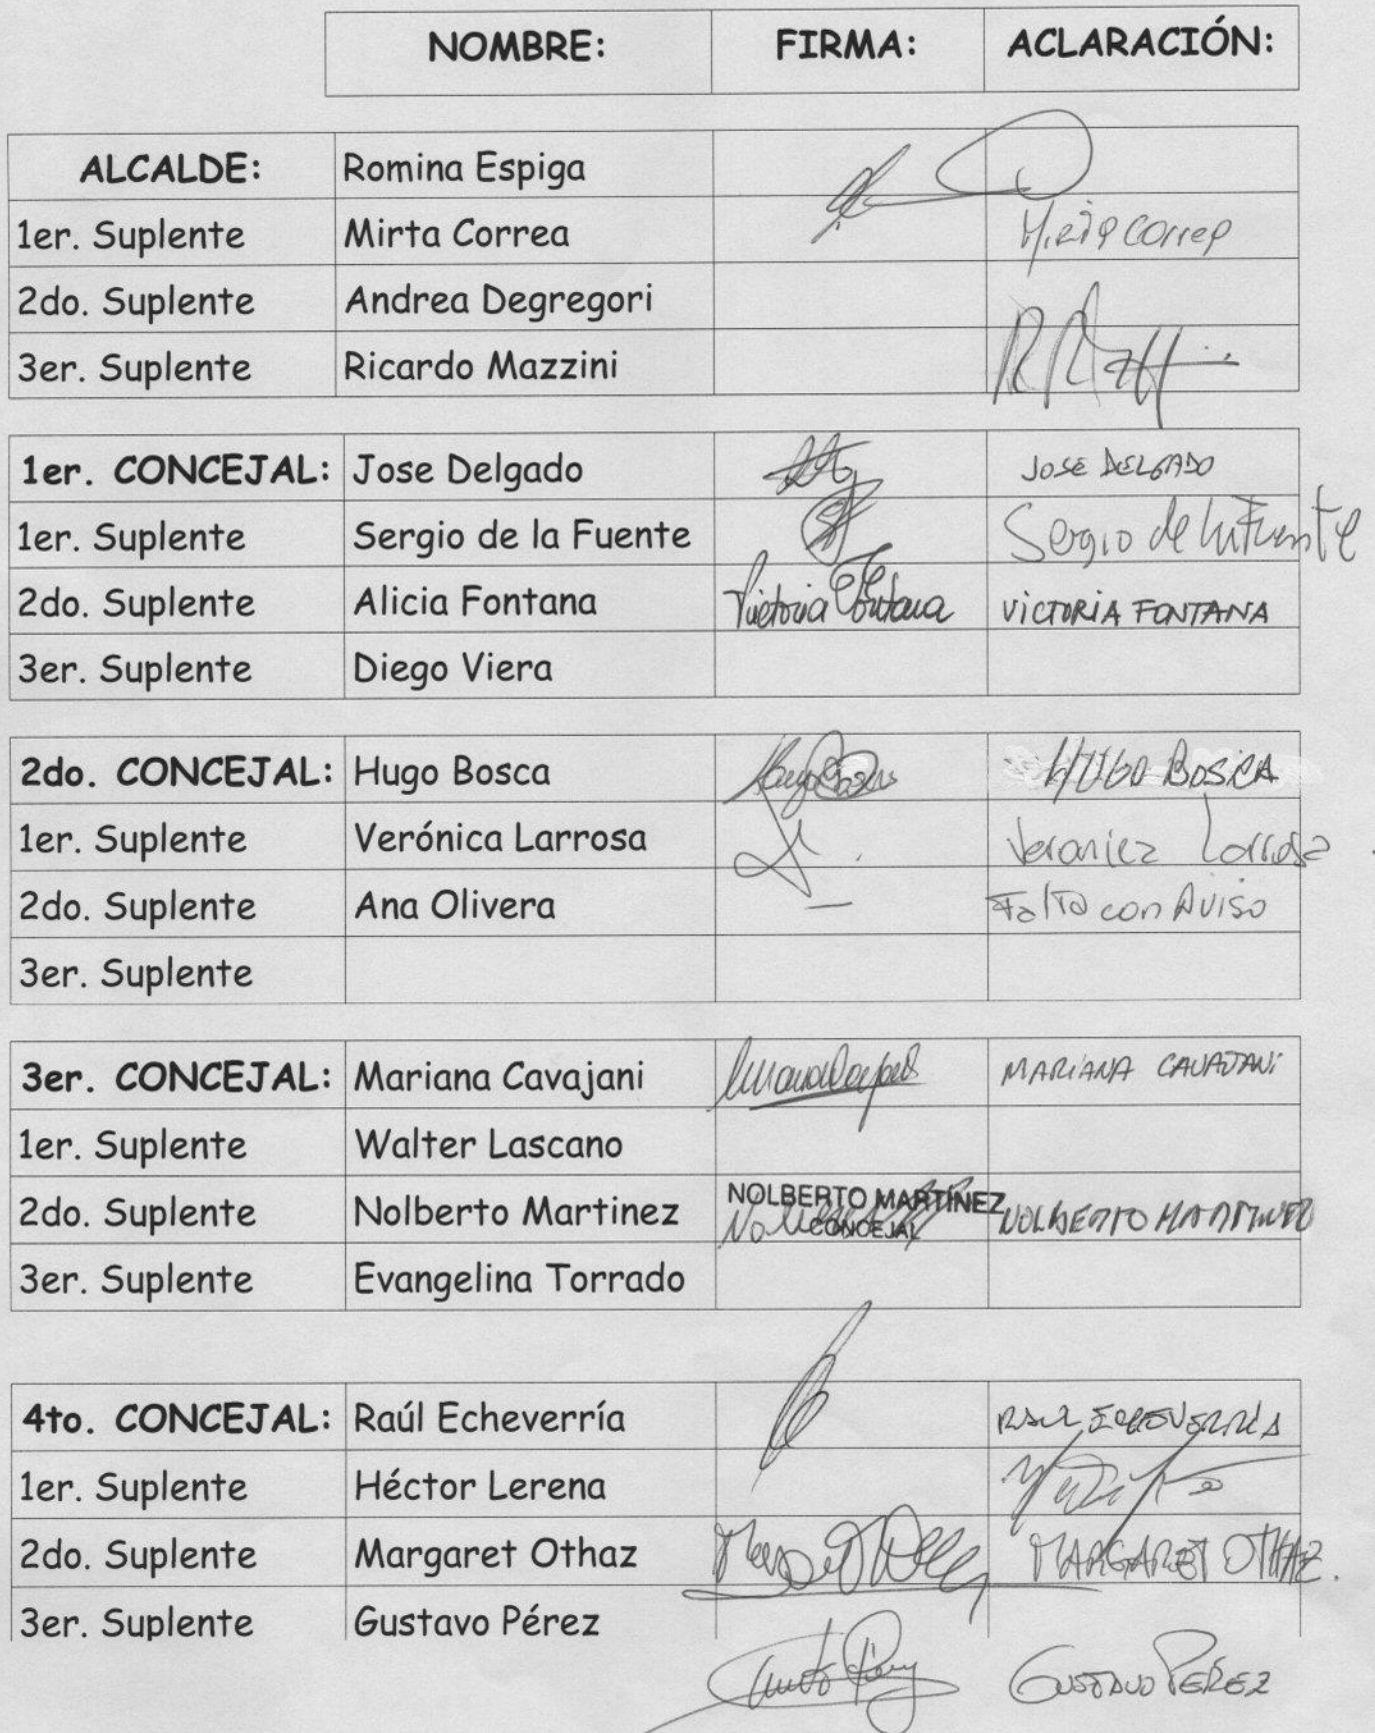 NOMBRE: FIRMA: ACLARACIÓN:
ALCALDE: Romina Espiga
1er. Suplente Mirta Correa Mirta Correa
2do. Suplente Andrea Degregori
3er. Suplente Ricardo Mazzini
1er. CONCEJAL: Jose Delgado JOSE DELGADO
1er. Suplente Sergio de la Fuente Sergio de la Fuente
2do. Suplente Alicia Fontana Victoria Fontana VICTORIA FONTANA
3er. Suplente Diego Viera
2do. CONCEJAL: Hugo Bosca HUGO BOSCA
1er. Suplente Verónica Larrosa Veronica Larrosa
2do. Suplente Ana Olivera — Falta con Aviso
3er. Suplente
3er. CONCEJAL: Mariana Cavajani MARIANA CAVAJANI
1er. Suplente Walter Lascano
2do. Suplente Nolberto Martinez NOLBERTO MARTINEZ CONCEJAL NOLBERTO MARTINEZ
3er. Suplente Evangelina Torrado
4to. CONCEJAL: Raúl Echeverría RAUL ECHEVERRIA
1er. Suplente Héctor Lerena
2do. Suplente Margaret Othaz MARGARET OTHAZ.
3er. Suplente Gustavo Pérez
GUSTAVO PEREZ